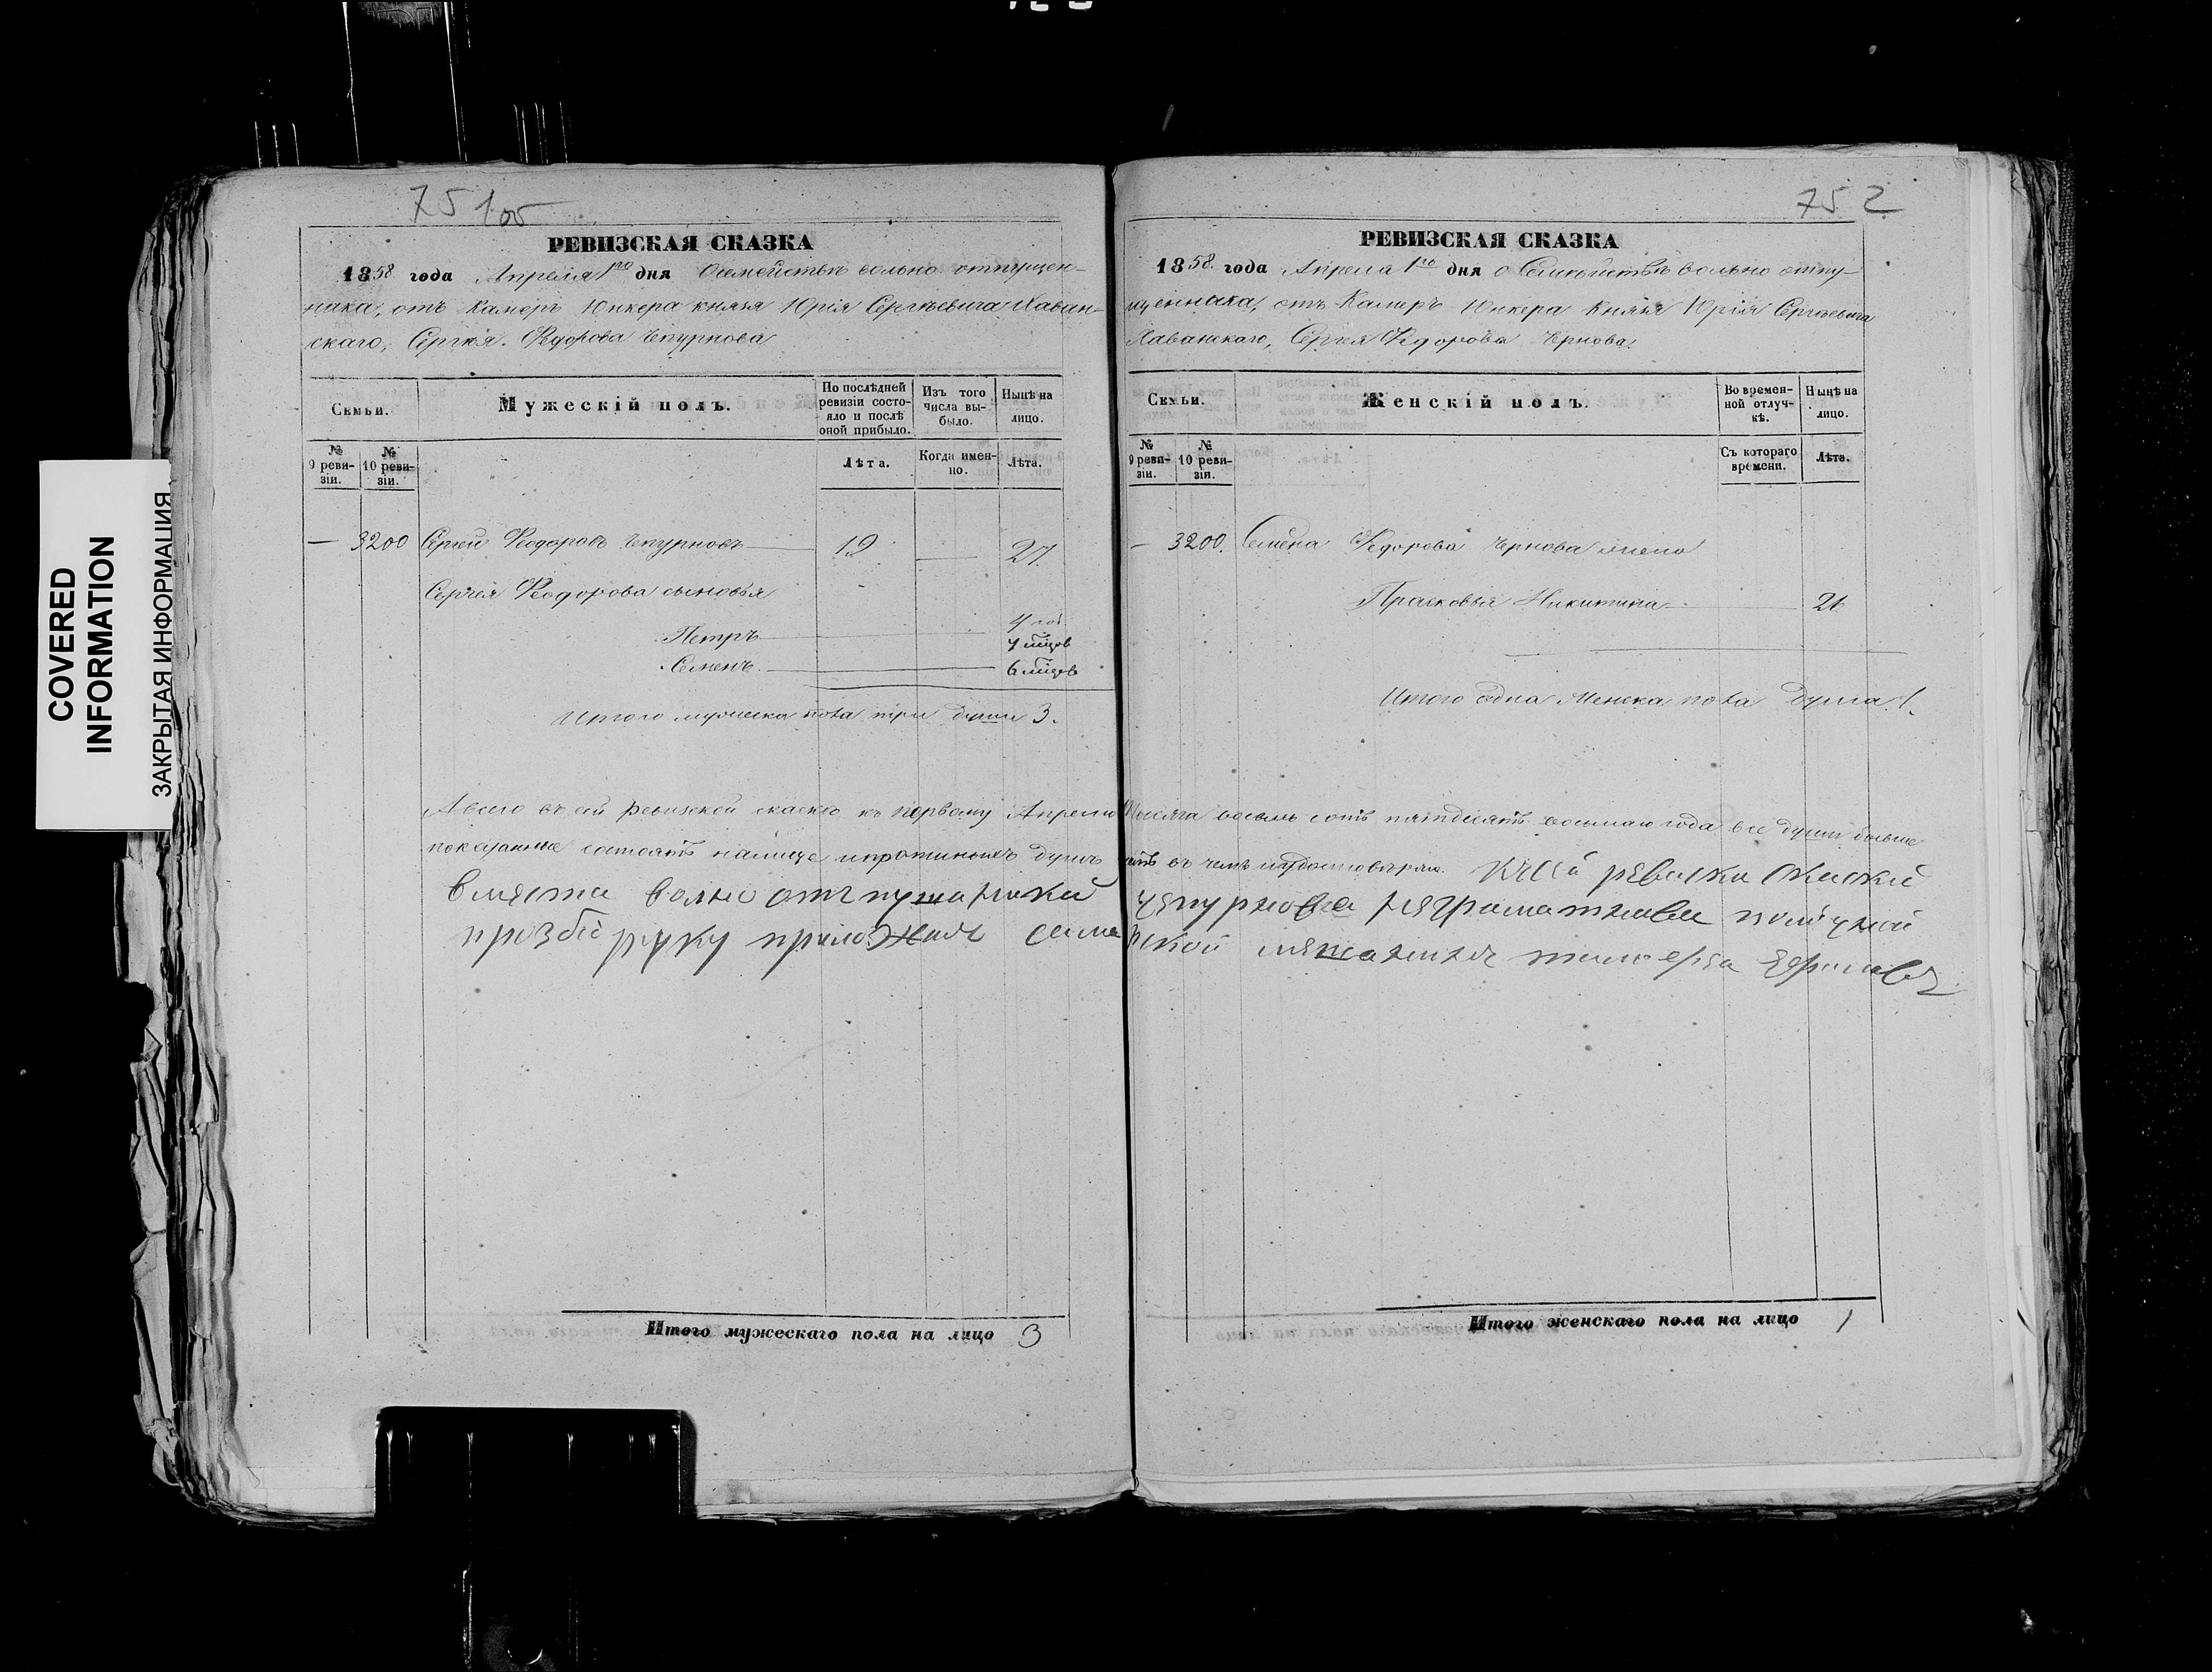 COVERED
INFORMATION
ЗАКРЫТАЯ ИНФОРМАЦИЯ
75 1об
РЕВИЗСКАЯ СКАЗКА
1858 года Апреля 1го дня О семействѣ вольно отпущен-
ника, отъ Камеръ Юнкера князя Юрія Сергѣевича Хаван-
скаго, Сергея Федорова Чепурнова
Семьи.
Мужескій полъ.
По послѣдней ревизіи состо-яло и послѣ оной прибыло.
Изъ того числа вы-было.
Нынѣ на лицо.
№ 9 реви-зіи.
№ 10 реви-зіи.
Лѣта.
Когда имен-но.
Лѣта.
— 3200 Сергей Феодоровъ Чепурновъ 19 — 27.
Сергея Феодорова сыновья
Петръ 4 год 7 мцов
Семенъ 6 мцов
Итого мужеска пола три души 3.
Итого мужескаго пола на лицо 3
75 2
РЕВИЗСКАЯ СКАЗКА
1858. года Апреля 1го дня о Семействѣ вольно отпу-
щенника, отъ Камеръ Юнкера Князя Юрія Сергѣевича
Хаванскаго, Сергея Федорова Чернова.
Семьи.
Женскій полъ.
Во времен-ной отлуч-кѣ.
Нынѣ на лицо.
№ 9 реви-зіи.
№ 10 реви-зіи.
Съ котораго времени.
Лѣта.
— 3200. Семена Федорова Чернова жена
Прасковья Никитина 21
Итого одна Женска пола душа 1.
А всего въ сей ревизской сказкѣ къ первому Апрелю Тысяча восемь сотъ пятдесятъ восьмаго года все души
показанные состоятъ налице и въ чемъ удостоверяю. К сей
вместа волно отпушаники чепурнова неграматнава
прозбе руку приложилъ
Итого женскаго пола на лицо 1